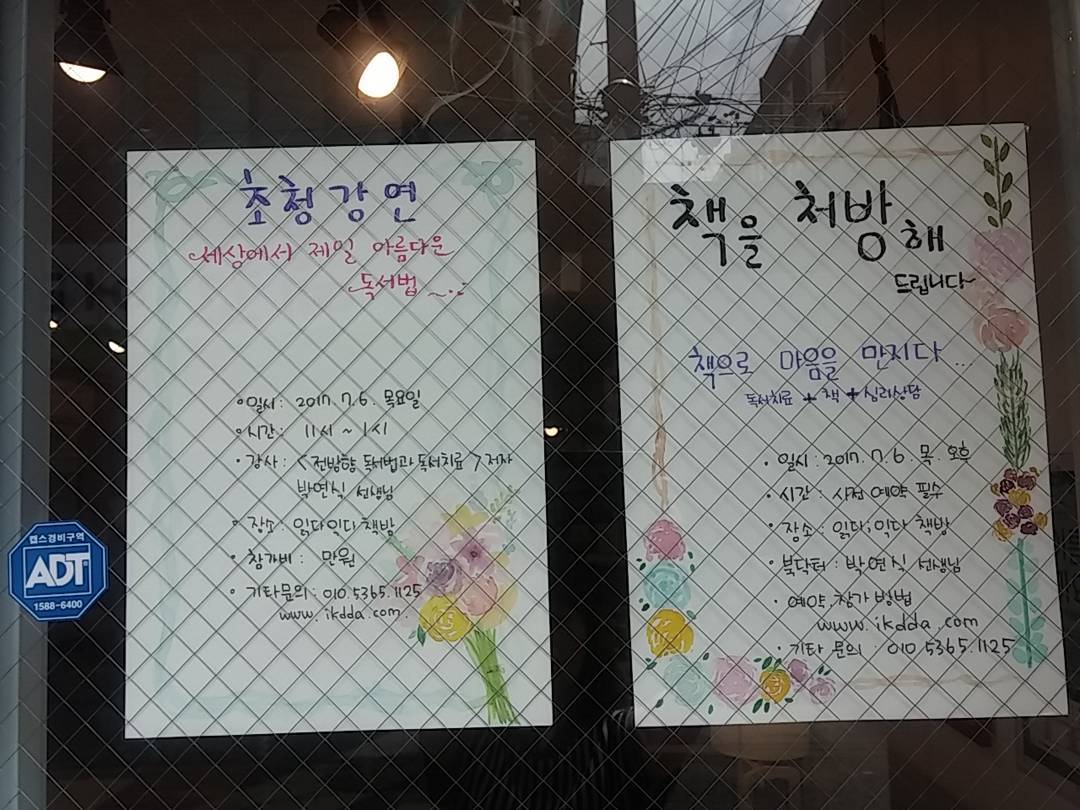 초청강연
세상에서 제일 아름다운
독서법
• 일시 : 2017. 7. 6. 목요일
• 시간 : 11시 ~ 1시
• 강사 : <전방향 독서법과 독서치료> 저자
박연식 선생님
• 장소 : 읽다익다 책방
• 참가비 : 만원
• 기타문의 : 010.5365.1125
www.ikdda.com
캡스경비구역
ADT
1588-6400
책을 처방해
드립니다~
책으로 마음을 만지다...
독서치료 + 책 + 심리상담
• 일시 : 2017. 7. 6. 목. 오후
• 시간 : 사전 예약 필수
• 장소 : 읽다, 익다 책방
• 북닥터 : 박연식 선생님
• 예약, 참가 방법
www.ikdda.com
• 기타 문의 : 010.5365.1125